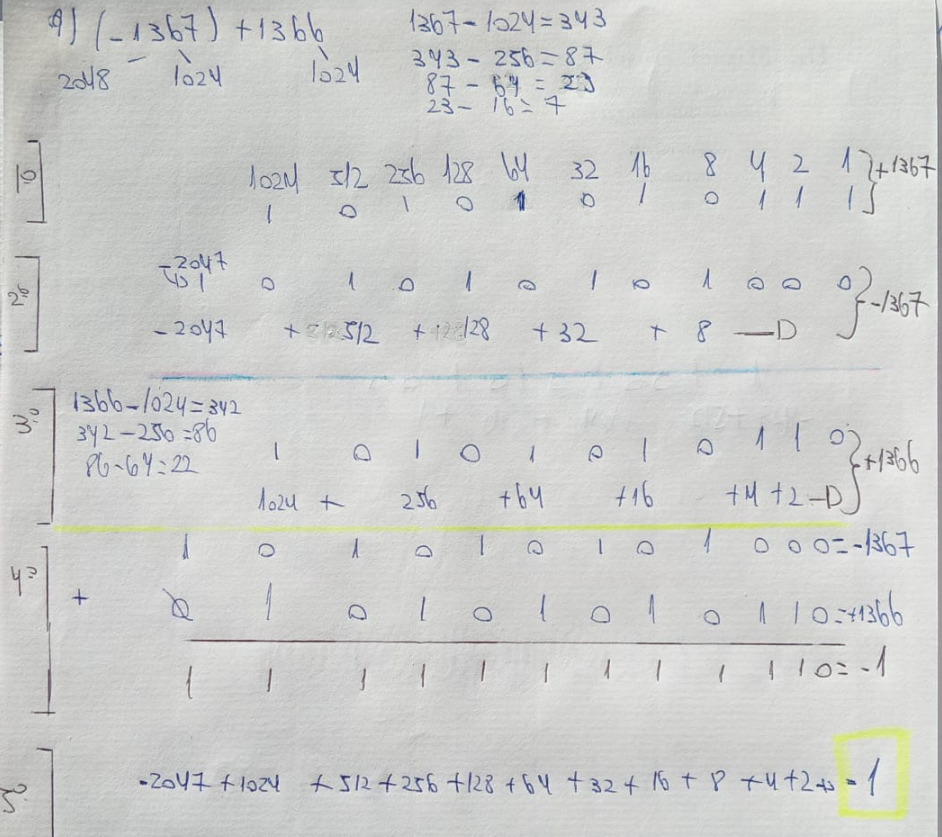 9) (-1367) + 1366
2048 - 1024 1024
1367 - 1024 = 343
343 - 256 = 87
87 - 64 = 23
23 - 16 = 7
1º
1024 512 256 128 64 32 16 8 4 2 1 } +1367
1 0 1 0 1 0 1 0 1 1 1
2º
-2047
1 0 1 0 1 0 1 0 1 0 0 0 } -1367
-2047 + 512 + 128 + 32 + 8 —D
3º
1366 - 1024 = 342
342 - 256 = 86
86 - 64 = 22
1 0 1 0 1 0 1 0 1 1 0 } +1366
1024 + 256 + 64 + 16 + 4 + 2 —D
4º
1 0 1 0 1 0 1 0 1 0 0 0 = -1367
+ 0 1 0 1 0 1 0 1 0 1 1 0 = +1366
1 1 1 1 1 1 1 1 1 1 1 0 = -1
5º
-2047 + 1024 + 512 + 256 + 128 + 64 + 32 + 16 + 8 + 4 + 2 = -1